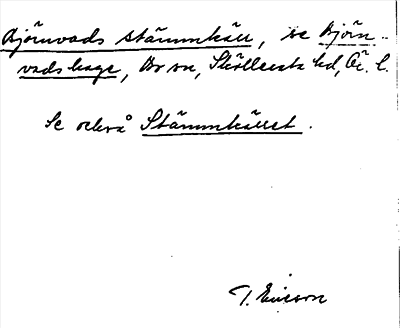 Björnvads stämmkärr, se Björn-
vadshage, Bo sn, Sköllersta hd, Ör. l.
Se också Stämmkärret.
T. Ericson